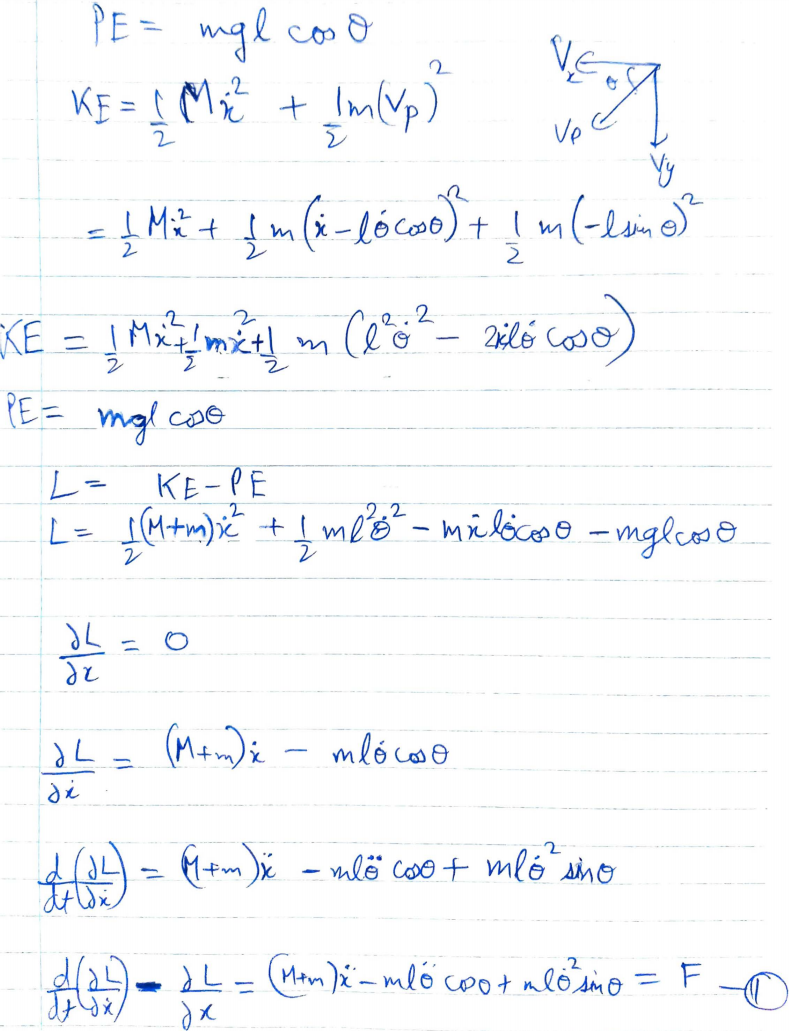 PE = mgl cos θ
KE = 1/2 Mẋ² + 1/2 m(Vp)²
Vx θ
Vp
Vy
= 1/2 Mẋ² + 1/2 m(ẋ - lθ̇ cosθ)² + 1/2 m(-l sin θ)²
KE = 1/2 Mẋ² + 1/2 mẋ² + 1/2 m (l²θ̇² - 2ẋlθ̇ cosθ)
PE = mgl cosθ
L = KE - PE
L = 1/2 (M+m)ẋ² + 1/2 ml²θ̇² - mẋlθ̇cosθ - mglcosθ
∂L/∂x = 0
∂L/∂ẋ = (M+m)ẋ - mlθ̇ cosθ
d/dt(∂L/∂ẋ) = (M+m)ẍ - mlθ̈ cosθ + mlθ̇² sinθ
d/dt(∂L/∂ẋ) - ∂L/∂x = (M+m)ẍ - mlθ̈ cosθ + mlθ̇² sinθ = F - ①